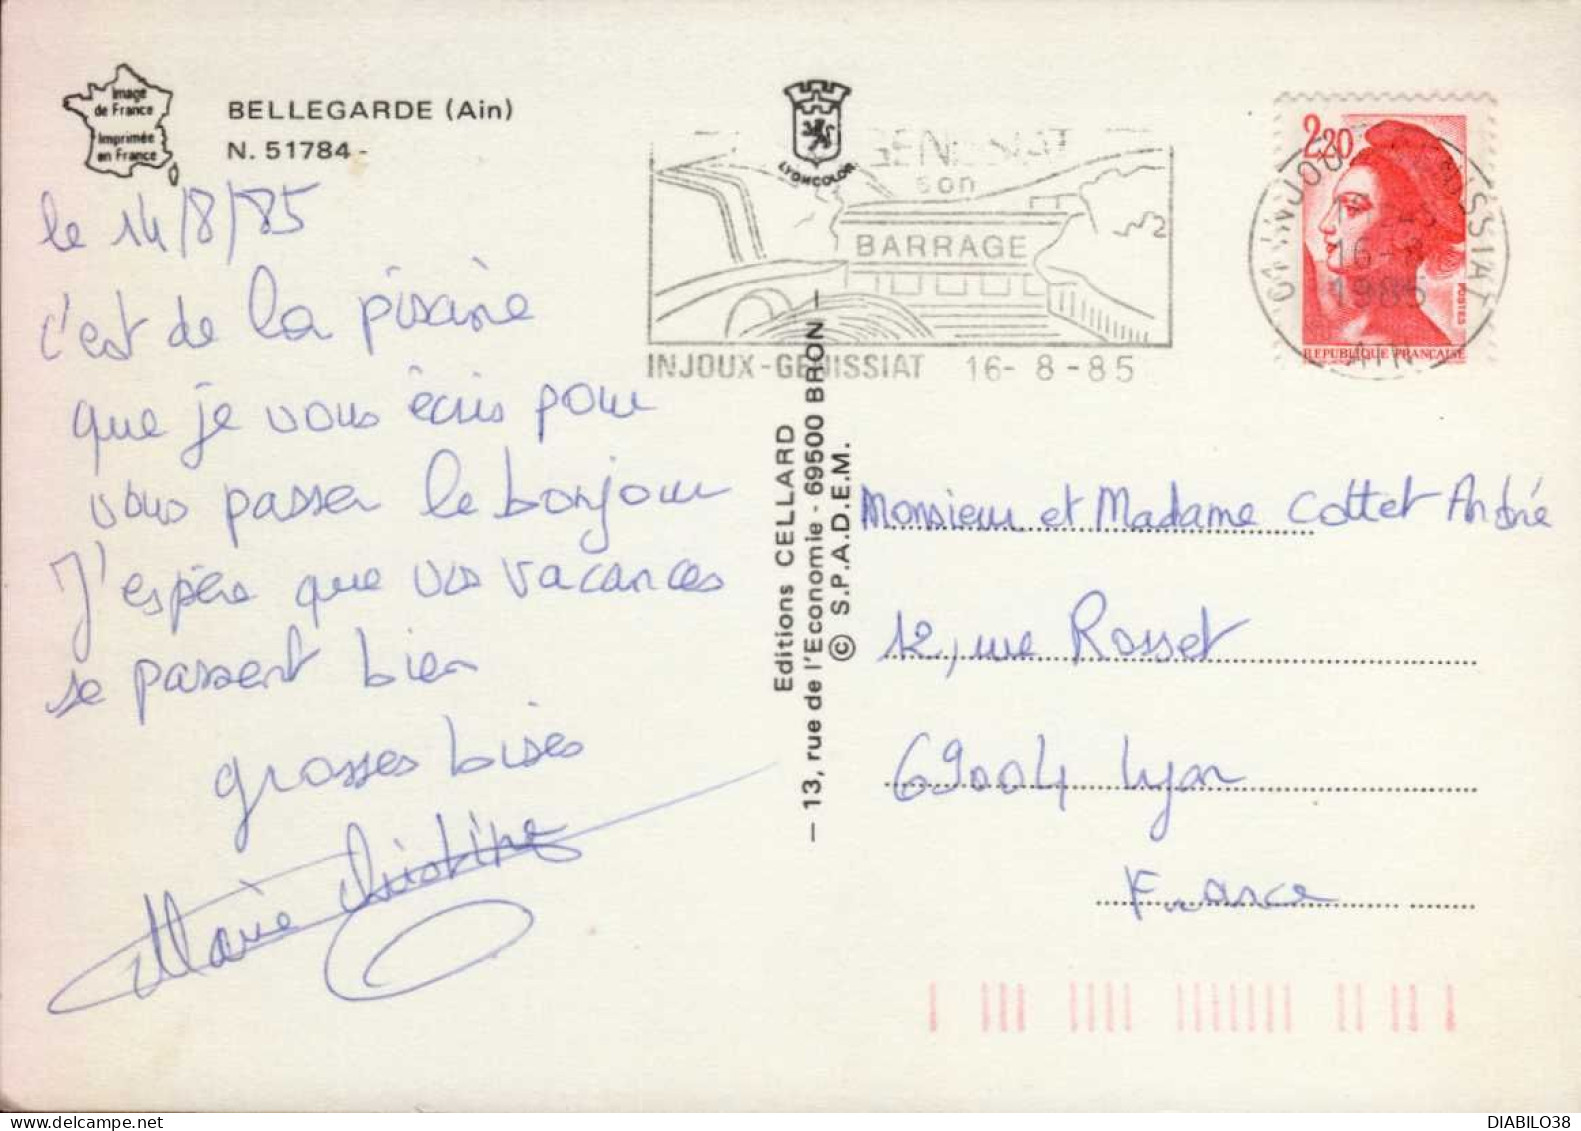 Image
de France
Imprimée
en France
BELLEGARDE (Ain)
N. 51784 -
le 14/8/85
c'est de la piscine
que je vous écris pour
vous passer le bonjour
J'espère que vos vacances
se passent bien
grosses bises
Marie Christine
LYONCOLOR
GENISSIAT
son
BARRAGE
INJOUX-GENISSIAT 16-8-85
01 INJOUX GENISSIAT
16-8
1985
AIN
2,20
POSTES
REPUBLIQUE FRANÇAISE
Editions CELLARD
— 13, rue de l'Economie - 69500 BRON —
© S.P.A.D.E.M.
Monsieur et Madame Cottet André
12, rue Rosset
69004 Lyon
France
DIABILO38